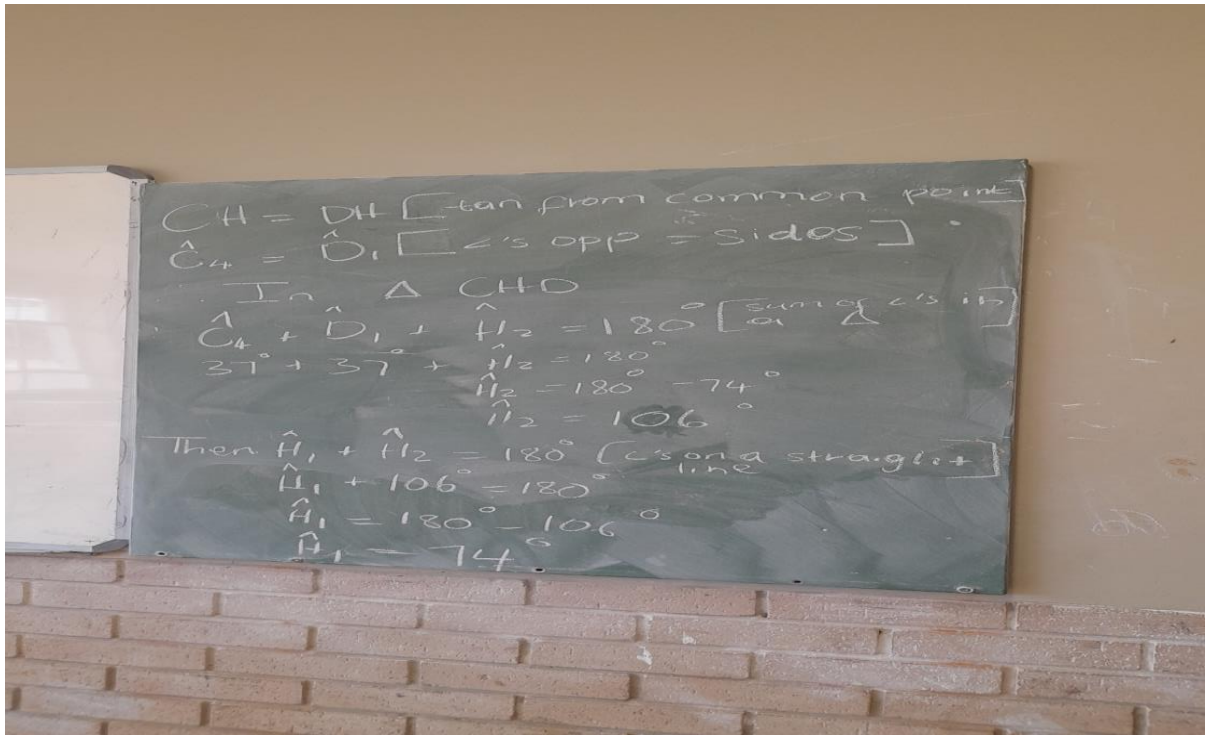 CH = DH [tan from common point]
Ĉ₄ = D̂₁ [∠'s opp = sides]
In Δ CHD
Ĉ₄ + D̂₁ + Ĥ₂ = 180° [sum of ∠'s in a Δ]
37° + 37° + Ĥ₂ = 180°
Ĥ₂ = 180° - 74°
Ĥ₂ = 106°
Then Ĥ₁ + Ĥ₂ = 180° [∠'s on a straight line]
Ĥ₁ + 106° = 180°
Ĥ₁ = 180° - 106°
Ĥ₁ = 74°